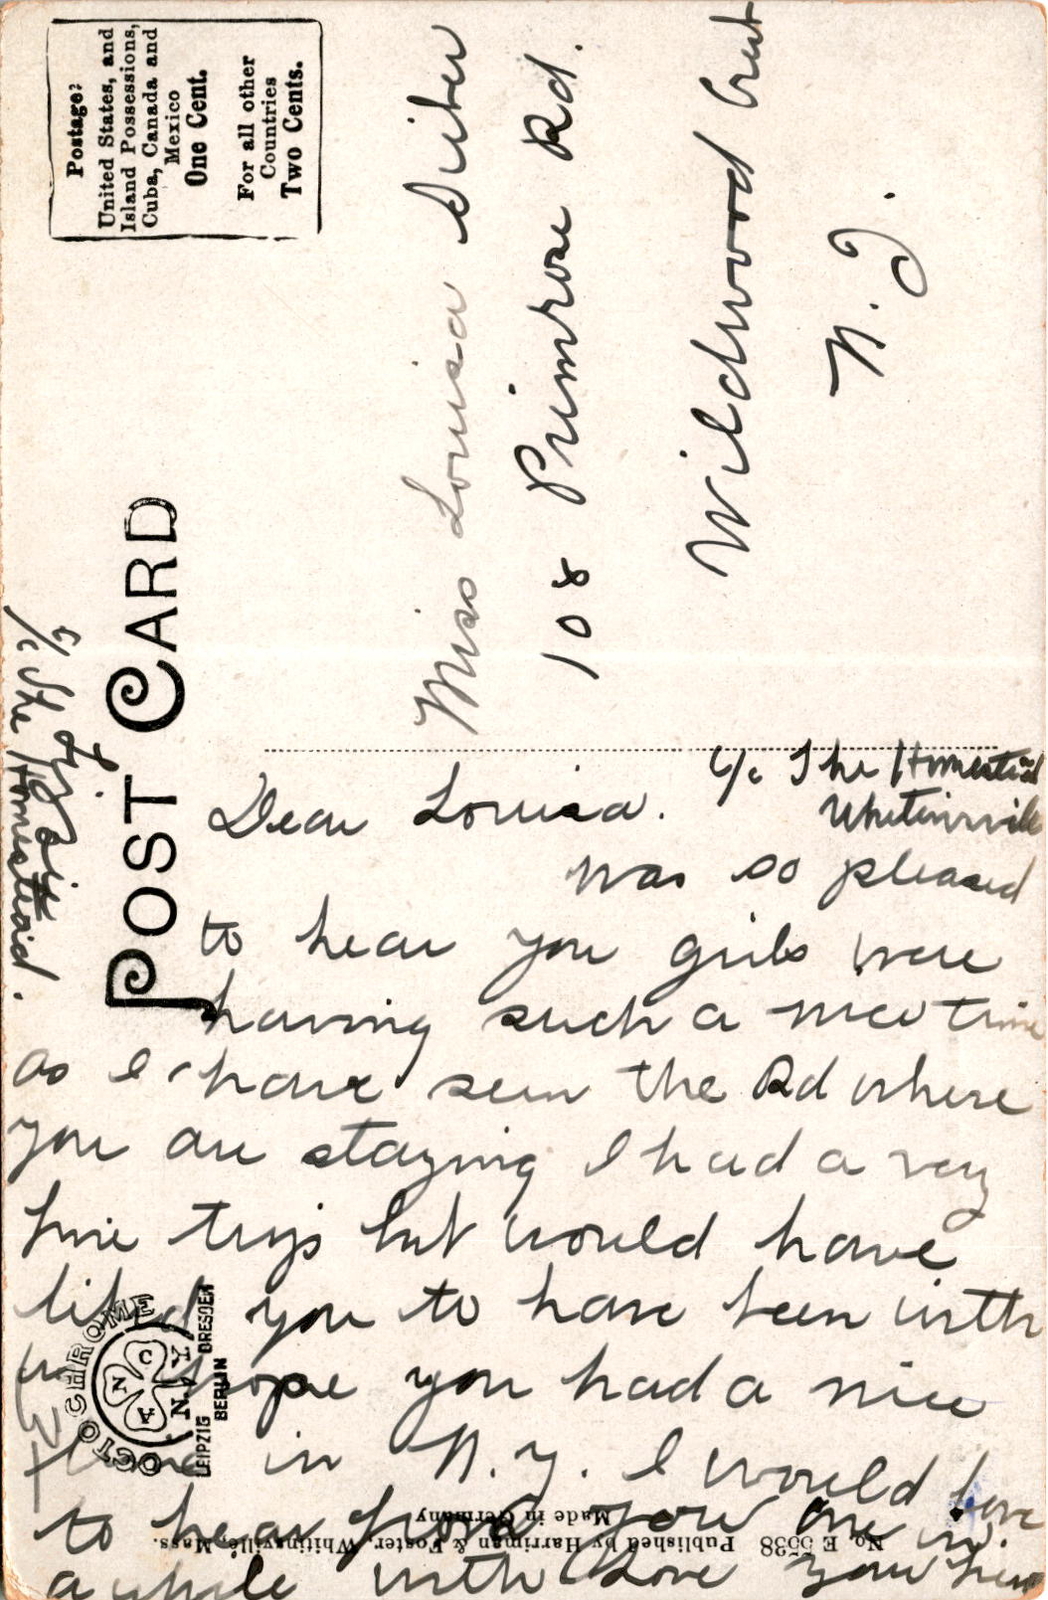 Postage:
United States, and
Island Possessions,
Cuba, Canada and
Mexico
One Cent.
For all other
Countries
Two Cents.
POST CARD
Miss Louisa
108 Primrose Rd.
Wildwood Crest
N. J.
c/o The Homestead
Whitinsville
Dear Louisa.
was so pleased
to hear you girls were
having such a nice time
as I have seen the Rd where
you are staying I had a very
fine trip but would have
liked you to have been with
us hope you had a nice
time in N. Y. I would love
to hear from you once in
awhile with Love your
c/o The Homestead.
OCTOCHROME
A N C
N Y
LEIPZIG BERLIN DRESDEN
No. E 5538 Published by Harriman & Foster, Whitinsville, Mass.
Made in Germany